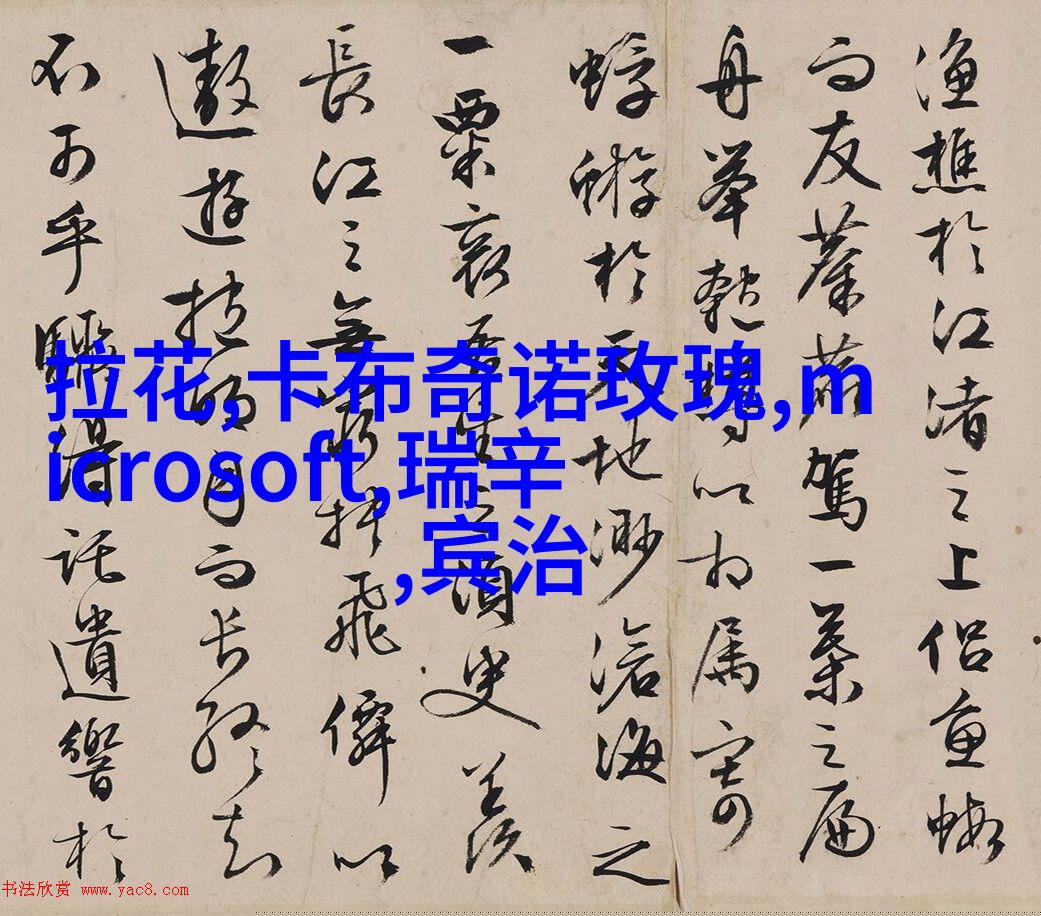 漁樵於江渚之上侶魚蝦
而友麋鹿駕一葉之扁
舟舉匏樽以相屬寄
蜉蝣於天地渺滄海之
一粟哀吾生之須臾羨
長江之無窮挾飛僊以
遨遊抱明月而長終知
不可乎驟得託遺響於
拉花,卡布奇诺玫瑰,m
icrosoft,瑞辛
,宾治
书法欣赏 www.yac8.com